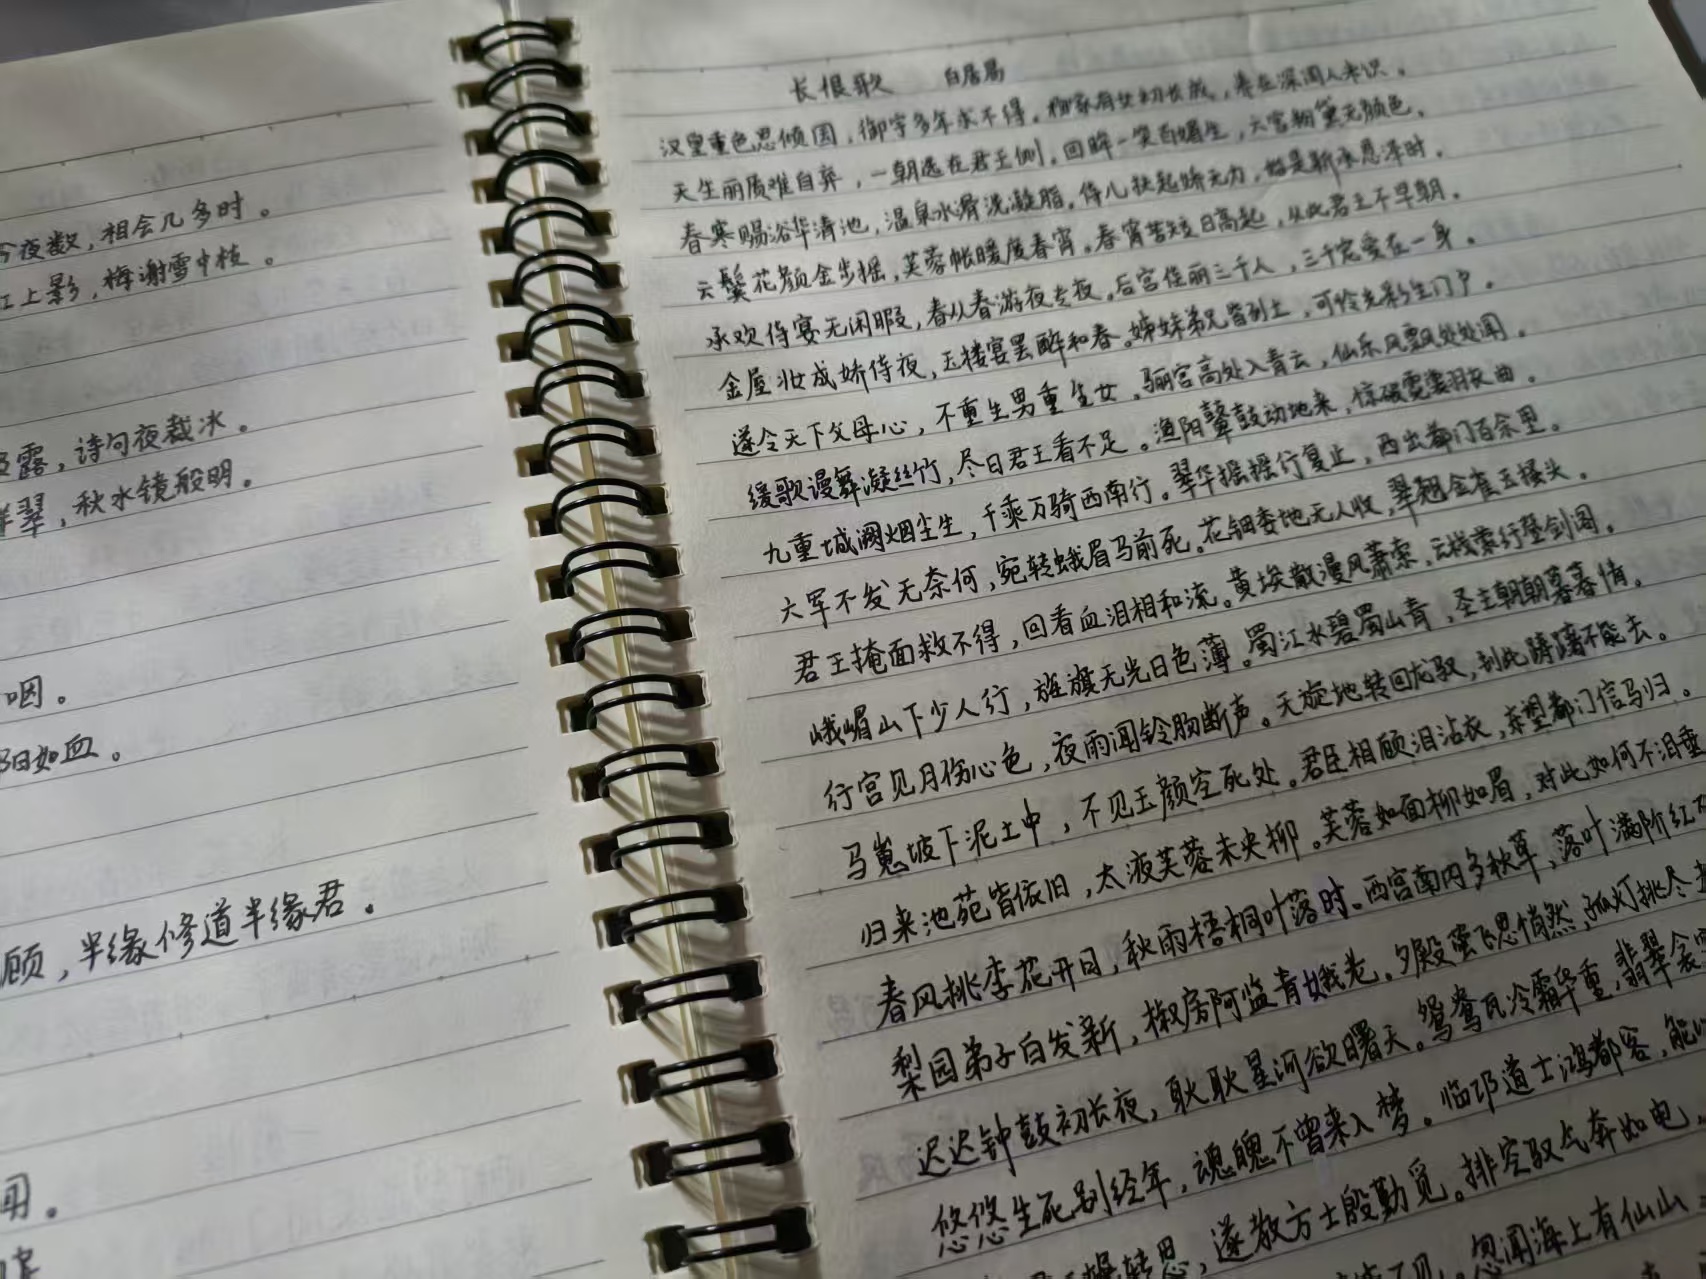 今夜数，相会几多时。
江上影，梅谢雪中枝。
露，诗句夜裁冰。
翠，秋水镜般明。
咽。
阳如血。
顾，半缘修道半缘君。
闻。
长恨歌 白居易
汉皇重色思倾国，御宇多年求不得。杨家有女初长成，养在深闺人未识。
天生丽质难自弃，一朝选在君王侧。回眸一笑百媚生，六宫粉黛无颜色。
春寒赐浴华清池，温泉水滑洗凝脂。侍儿扶起娇无力，始是新承恩泽时。
云鬓花颜金步摇，芙蓉帐暖度春宵。春宵苦短日高起，从此君王不早朝。
承欢侍宴无闲暇，春从春游夜专夜。后宫佳丽三千人，三千宠爱在一身。
金屋妆成娇侍夜，玉楼宴罢醉和春。姊妹弟兄皆列土，可怜光彩生门户。
遂令天下父母心，不重生男重生女。骊宫高处入青云，仙乐风飘处处闻。
缓歌谩舞凝丝竹，尽日君王看不足。渔阳鼙鼓动地来，惊破霓裳羽衣曲。
九重城阙烟尘生，千乘万骑西南行。翠华摇摇行复止，西出都门百余里。
六军不发无奈何，宛转蛾眉马前死。花钿委地无人收，翠翘金雀玉搔头。
君王掩面救不得，回看血泪相和流。黄埃散漫风萧索，云栈萦纡登剑阁。
峨嵋山下少人行，旌旗无光日色薄。蜀江水碧蜀山青，圣主朝朝暮暮情。
行宫见月伤心色，夜雨闻铃肠断声。天旋地转回龙驭，到此踌躇不能去。
马嵬坡下泥土中，不见玉颜空死处。君臣相顾泪沾衣，东望都门信马归。
归来池苑皆依旧，太液芙蓉未央柳。芙蓉如面柳如眉，对此如何不泪垂
春风桃李花开日，秋雨梧桐叶落时。西宫南内多秋草，落叶满阶红不
梨园弟子白发新，椒房阿监青娥老。夕殿萤飞思悄然，孤灯挑尽
迟迟钟鼓初长夜，耿耿星河欲曙天。鸳鸯瓦冷霜华重，翡翠衾
悠悠生死别经年，魂魄不曾来入梦。临邛道士鸿都客，能
展转思，遂教方士殷勤觅。排空驭气奔如电，
不见。忽闻海上有仙山